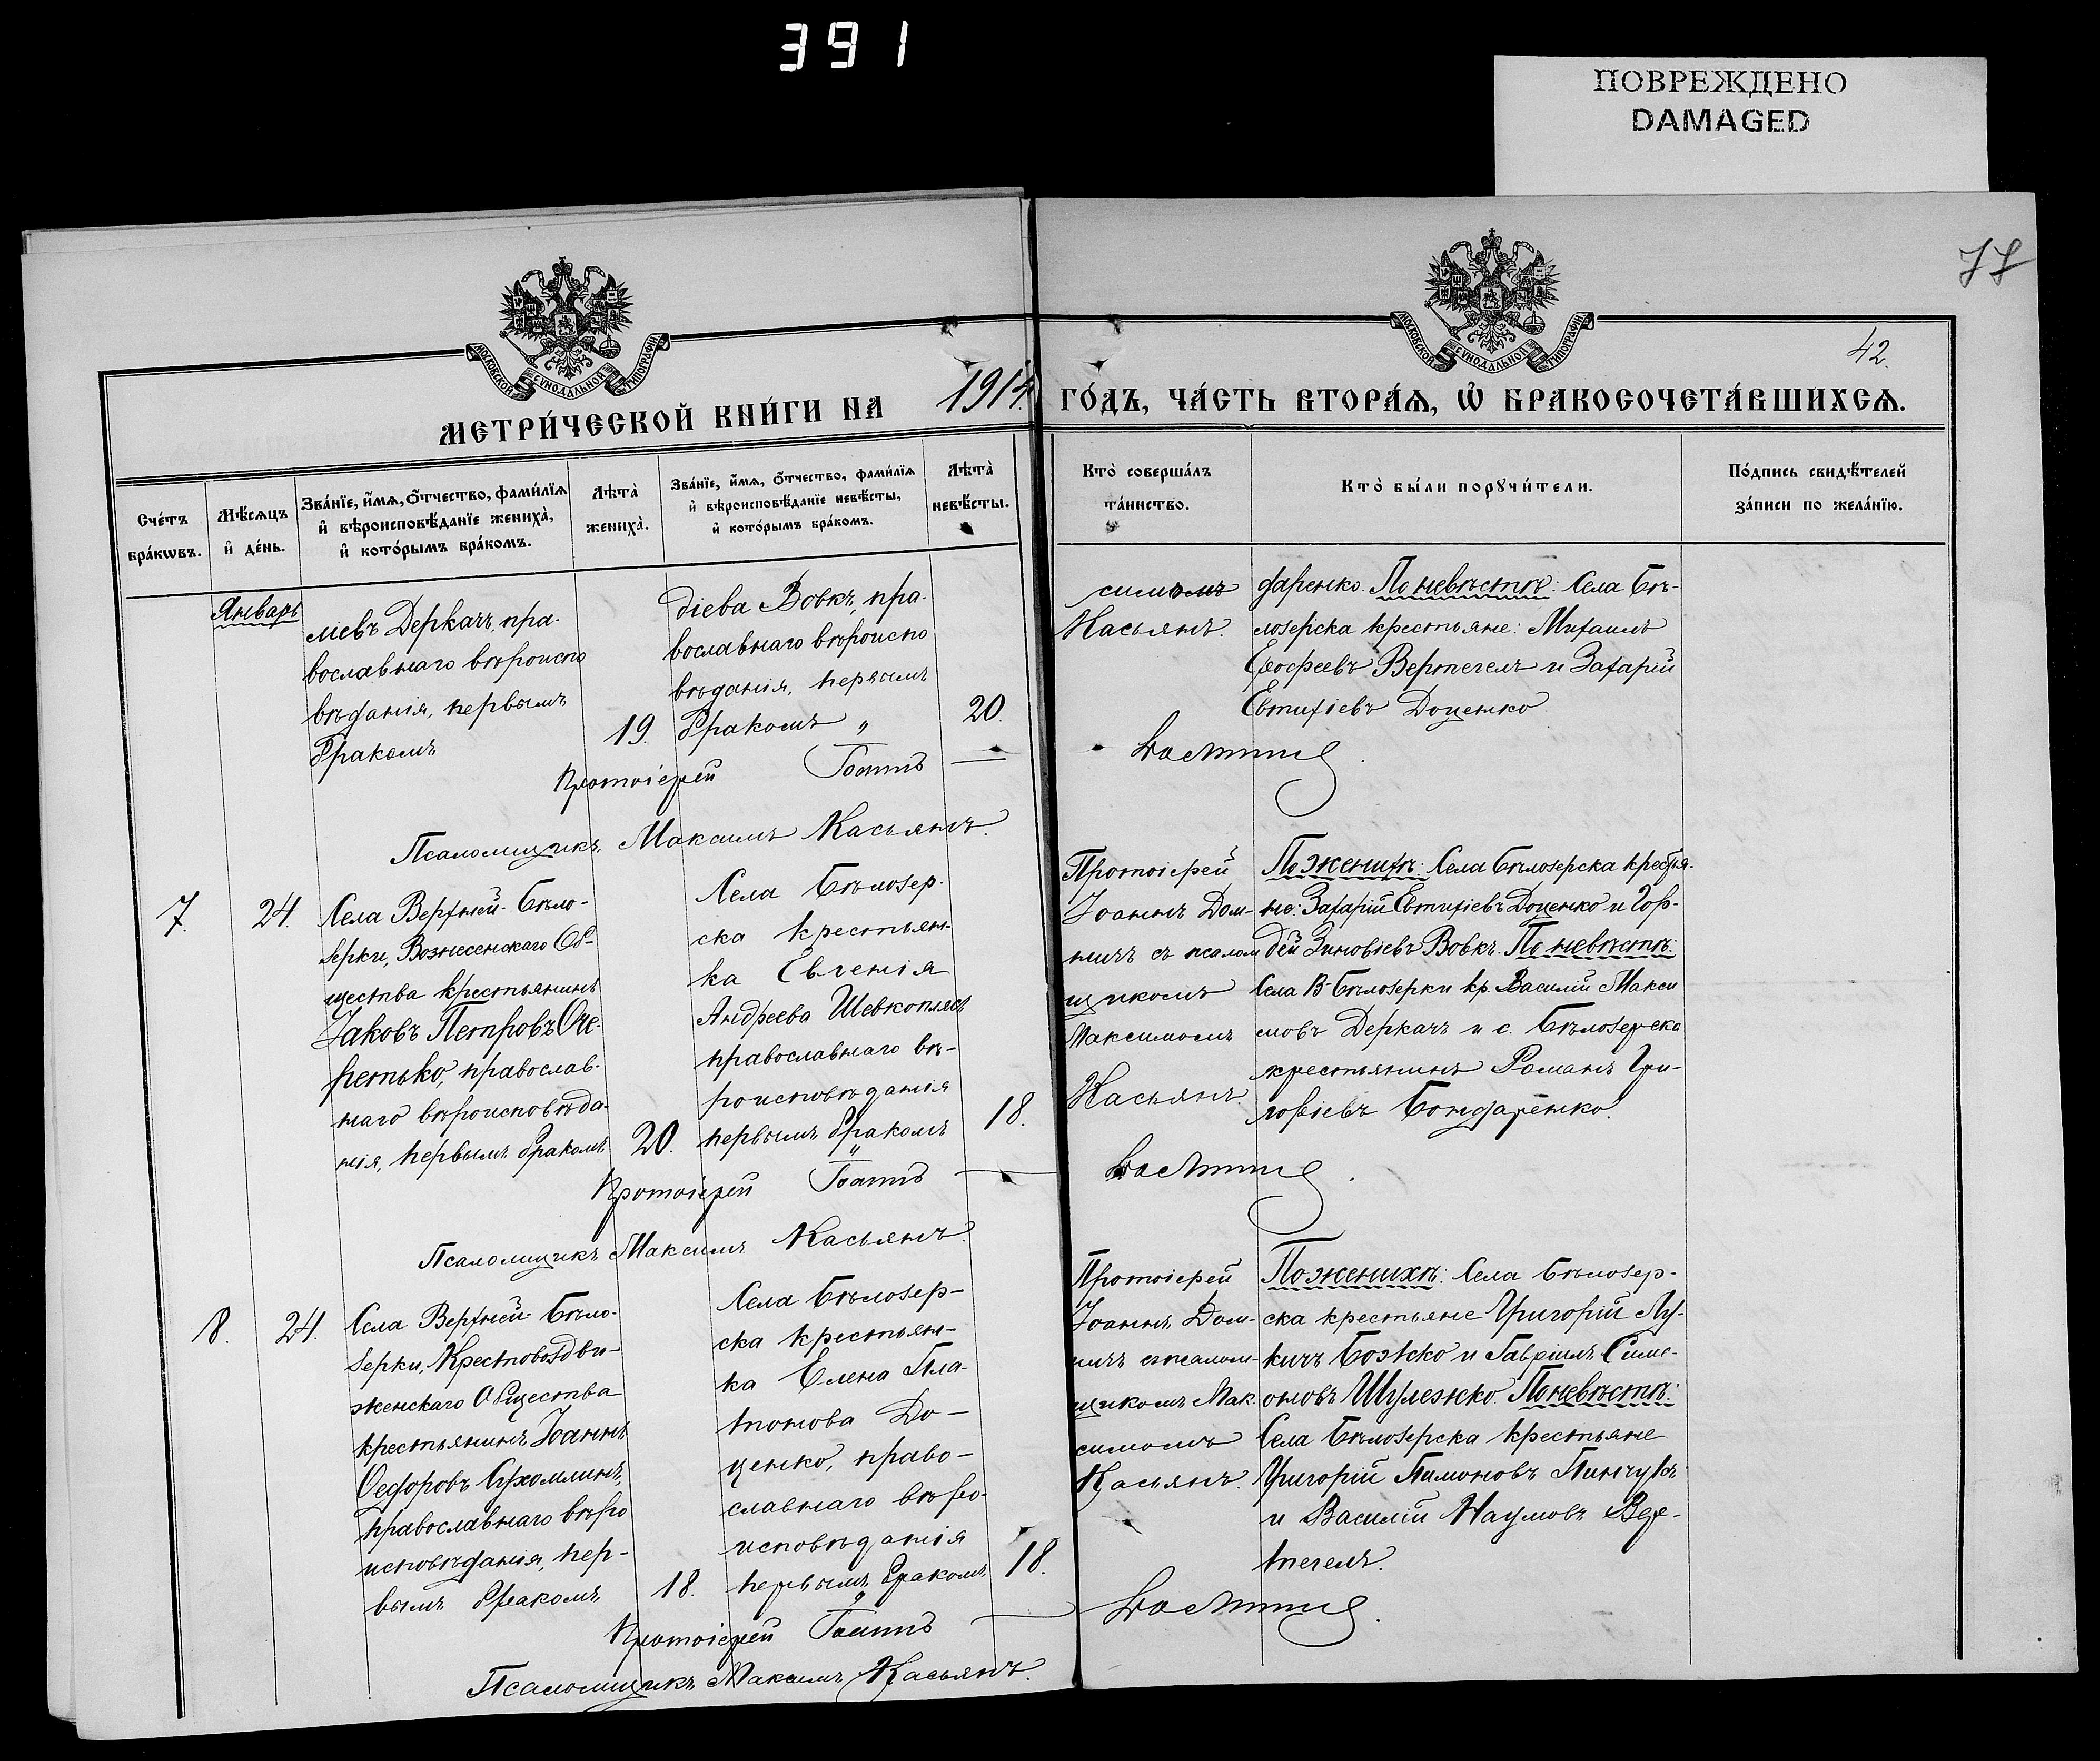 391
ПОВРЕЖДЕНО
DAMAGED
77
42.
МОСКОВСКОЙ СѴНОДАЛЬНОЙ ТИПОГРАФІИ
МОСКОВСКОЙ СѴНОДАЛЬНОЙ ТИПОГРАФІИ
МЕТРИ́ЧЕСКОЙ КНИ́ГИ НА 1914. ГО́ДЪ, ЧА́СТЬ ВТОРА́Ѧ, Ѡ҆ БРАКОСОЧЕТА́ВШИХСѦ.
Сче́тъ
бра́кѡвъ.
Мѣ́сѧцъ
и҆ де́нь.
Зва́нїе, и҆́мѧ, ѻ҆́тчество, фами́лїѧ
и҆ вѣроисповѣ́данїе жениха̀,
и҆ кото́рымъ бра́комъ.
Лѣта̀
жениха̀.
Зва́нїе, и҆́мѧ, ѻ҆́тчество, фами́лїѧ
и҆ вѣроисповѣ́данїе невѣ́сты,
и҆ кото́рымъ бра́комъ.
Лѣта̀
невѣ́сты.
Кто̀ соверша́лъ
та́инство.
Кто̀ бы́ли порꙋчи́тели.
По́дпись свидѣ́телей
за́писи по жела́нїю.
Январь
ліевъ Деркачъ, пра-
вославнаго вѣроиспо
вѣданія, первымъ
бракомъ
19.
діева Вовкъ, пра-
вославнаго вѣроиспо
вѣданія, первымъ
бракомъ "
20.
симомъ
Касьянъ.
даренко. По невѣстѣ: Села Бѣ-
лозерска крестьяне: Михаилъ
Веротечелъ и Захарій
Евтихіевъ Доценко
Протоіерей Іоаннъ
Псаломщикъ Максимъ Касьянъ.
7.
24.
Села Верхней-Бѣло-
зерки, Вознесенскаго Об-
щества крестьянинъ
Іаковъ Петровъ Оче-
ретько, православ-
наго вѣроисповѣда-
нія, первымъ бракомъ
20.
Села Бѣлозер-
ска крестьян-
ка Евгенія
Андреева Шевкоплясъ
православнаго вѣ-
роисповѣданія
первымъ бракомъ
"
18.
Протоіерей
Іоаннъ Дом-
ничъ съ псалом
щикомъ
Максимомъ
Касьянъ.
По женихѣ: Села Бѣлозерска крестья-
не: Захарій Евтихіевъ Доценко и Гор-
дѣй Зиновіевъ Вовкъ. По невѣстѣ:
Села В-Бѣлозерки кр. Василій Макси
мовъ Деркачъ и с. Бѣлозерска
крестьянинъ Романъ Гри-
горіевъ Бондаренко
Протоіерей Іоаннъ
Псаломщикъ Максимъ Касьянъ.
8.
24.
Села Верхней-Бѣло-
зерки, Крестовоздви-
женскаго Общества
крестьянинъ Іоаннъ
Ѳедоровъ Сухомлинъ,
православнаго вѣро
исповѣданія, пер-
вымъ бракомъ
18.
Села Бѣлозер-
ска крестьян-
ка Елена Пла-
тонова До-
ценко, право-
славнаго вѣро-
исповѣданія
первымъ бракомъ
"
18.
Протоіерей
Іоаннъ Дом-
ничъ съ псалом-
щикомъ Мак-
симомъ
Касьянъ.
По женихѣ: Села Бѣлозер-
ска крестьяне Григорій Лу-
кичъ Божко и Гавріилъ Симе-
оновъ Шулежко. По невѣстѣ:
Села Бѣлозерска крестьяне
Григорій Пимоновъ Пинчукъ
и Василій Наумовъ Вере-
течелъ.
Протоіерей Іоаннъ
Псаломщикъ Максимъ Касьянъ.